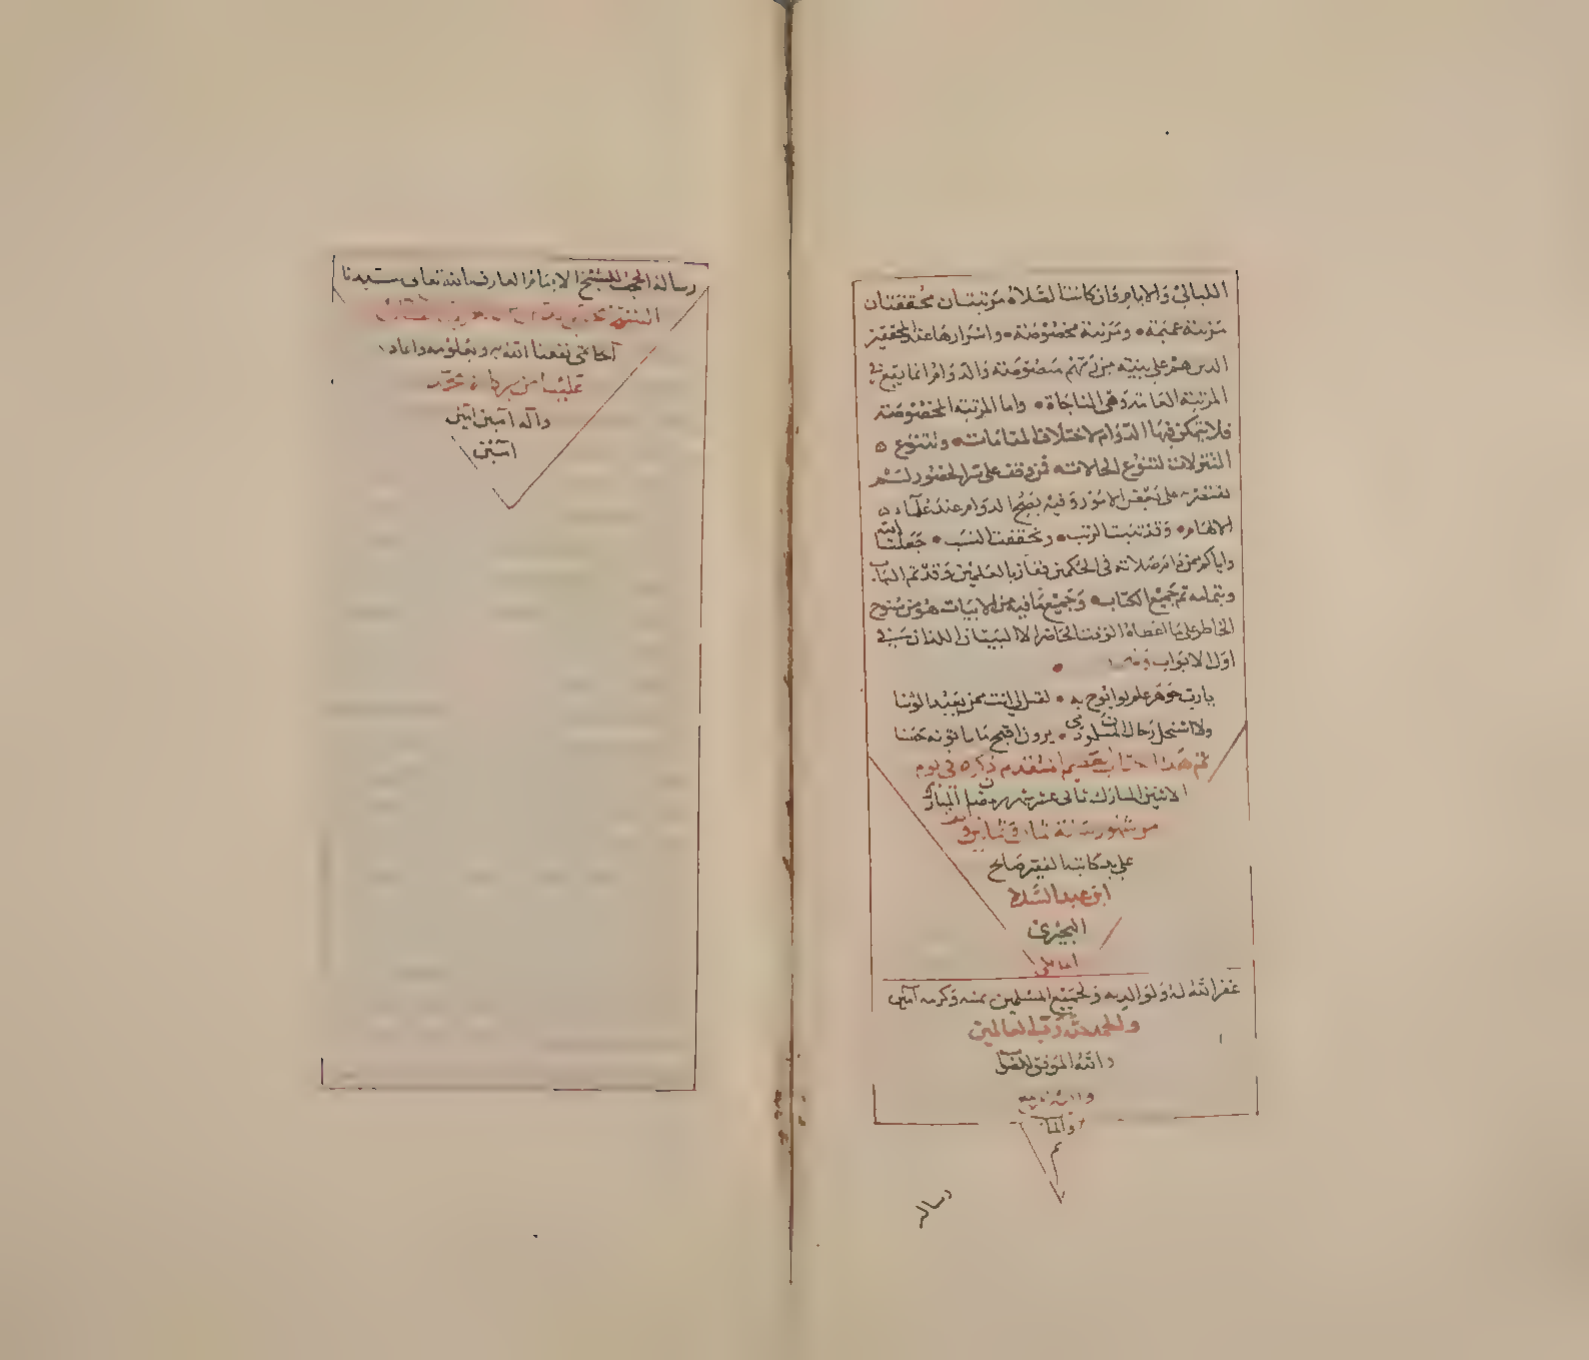 الليالى والايام وان كانت الصلاة مرتبتان محققتان
مرتبة عميمة ومرتبة مخصوصة واسرارها عند المحققين
الذين هم على بينة من ربهم منصوصة والدوام انما يقع فى
المرتبة العامة وهى المناجاة واما المرتبة المخصوصة
فلا يتمكن فيها الدوام لاختلاف المقامات وتنوع
التنزلات لتنوع الحالات فمن وقف على سر الحضور
على الامور وفيه يصح الدوام عند علماء
الالهام وقد تبينت الرتب وتحققت النسب جعلنا الله
واياكم ممن دام صلاته فى الحكمين ففاز بالعلمين وقد تم الباب
وبتمامه تم جميع الكتاب وجميع ما فيه من الابيات هو من سنوح
الخاطر على ما اعطاه الوقت الحاضر الا البيتان اللذان فى
اول الابواب وهما
يا رب جوهر علم لو ابوح به لقيل لى انت ممن يعبد الوثنا
ولا استحل رجال المسلمون دمى يرون اقبح ما ياتونه حسنا
تم هذا ذكره فى يوم
الاثنين المبارك ثانى عشر شهر رمضان المبارك
من شهور سنة
على يد كاتبه الفقير صالح
ابن عبد السلام
البحيرى
غفر الله له ولوالديه ولجميع المسلمين بمنه وكرمه آمين
والحمد لله رب العالمين
والله الموفق
رسالة
رسالة الحجب للشيخ الامام العارف بالله تعالى سيدنا
نفعنا الله به وبعلومه واعاد
علينا من بركاته
وآله آمين امين
امين